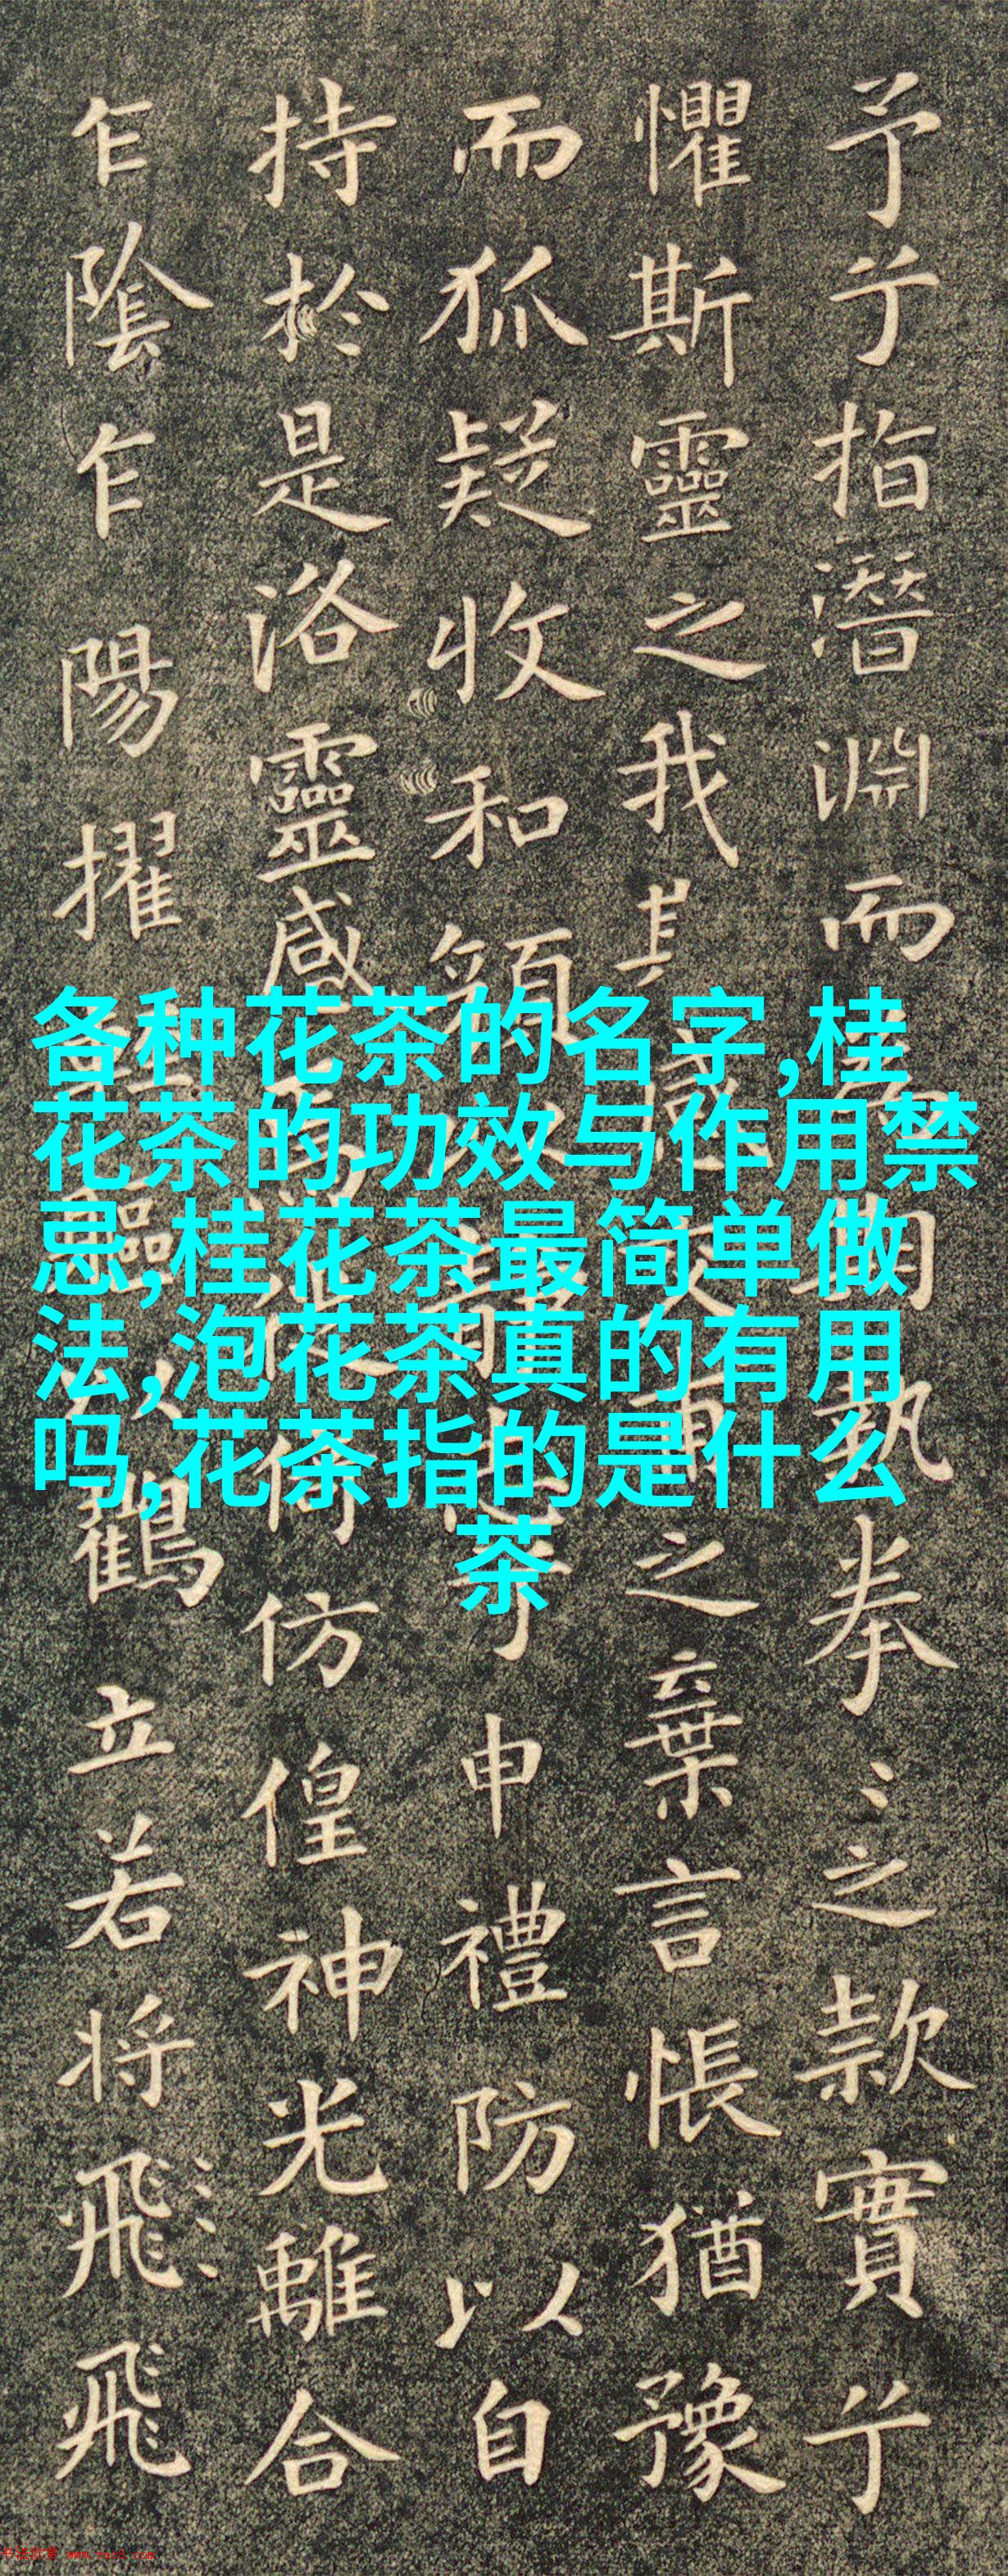 予兮指潛淵而期執拳〻之款實兮
懼斯靈之我交之棄言悵猶豫
而狐疑收和顏兮申禮防以自
持於是洛靈感倚仿偟神光離合
乍陰乍陽擢軀以鶴立若將飛飛
各种花茶的名字,桂
花茶的功效与作用禁
忌,桂花茶最简单做
法,泡花茶真的有用
吗,花茶指的是什么
茶